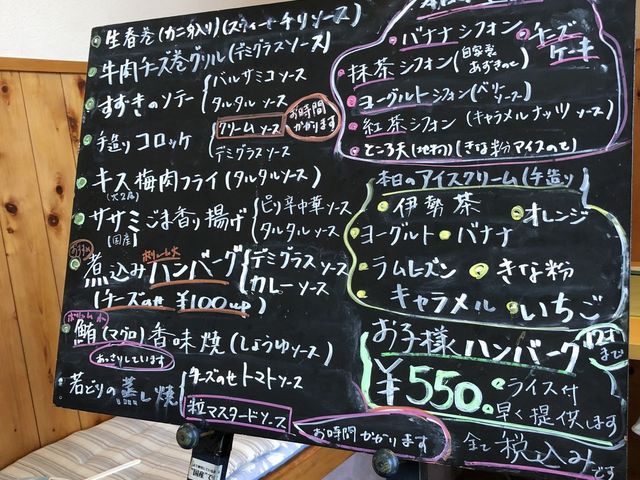 生春巻(カニ入り)(スウィートチリソース)
牛肉チーズ巻グリル(デミグラスソース)
すずきのソテー バルサミコソース
タルタルソース
手造りコロッケ クリームソース お時間かかります
デミグラスソース
キス梅肉フライ(タルタルソース)
ササミごま香り揚げ ピリ辛中華ソース
[国産] タルタルソース
ボリューム大
煮込みハンバーグ デミグラスソース
カレーソース
(チーズのせ ¥100up)
鮪(マグロ)香味焼(しょうゆソース)
あっさりしています
若どりの蒸し焼 チーズのせトマトソース
粒マスタードソース お時間かかります
バナナシフォン チーズケーキ
抹茶シフォン(自家製あずきのせ)
ヨーグルトシフォン(ベリーソース)
紅茶シフォン(キャラメルナッツソース)
ところ天(地物)(きな粉アイスのせ)
本日のアイスクリーム(手造り
伊勢茶 オレンジ
ヨーグルト バナナ
ラムレーズン きな粉
キャラメル いちご
お子様ハンバーグ
¥550 ライス付
早く提供します
全て税込みです